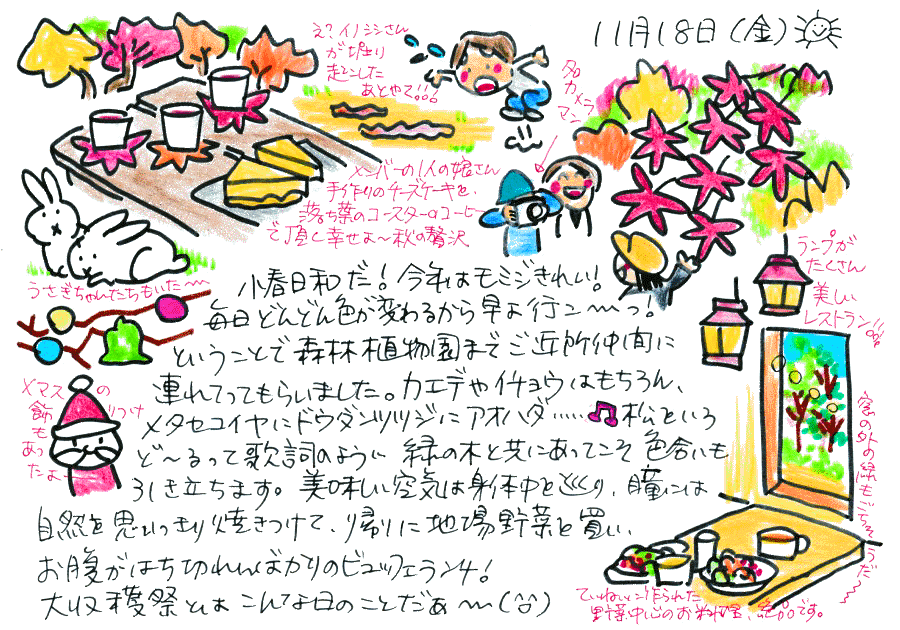 11月18日（金）
え？イノシシさん
が堀り
起こした
あとやて!!!
タカメンマン
メンバーの1人の娘さん
手作りのチーズケーキを
落ち葉のコースターのコーヒー
で頂く幸せよ〜秋の贅沢
うさぎちゃんたちもいた〜〜
Xマスの
飾りつけ
もあったよ
ランプが
たくさん
美しい
レストラン!!
窓の外の緑もごちそうだ〜〜
小春日和だ！今年はモミジきれい！
毎日どんどん色が変わるから早よ行こ〜〜っ。
ということで森林植物園までご近所仲間に
連れてってもらいました。カエデやイチョウはもちろん、
メタセコイヤにドウダンツツジにアオハダ……♫松をいろ
ど〜るって歌詞のように 緑の木と共にあってこそ色合いも
引き立ちます。美味しい空気は身体中を巡り、瞳には
自然を思いっきり焼きつけて、帰りに地場野菜を買い、
お腹がはち切れんばかりのビュッフェランチ！
大収穫祭とは こんな日のことだぁ〜〜
ていねいに作られた
野菜中心のお料理、絶品です。